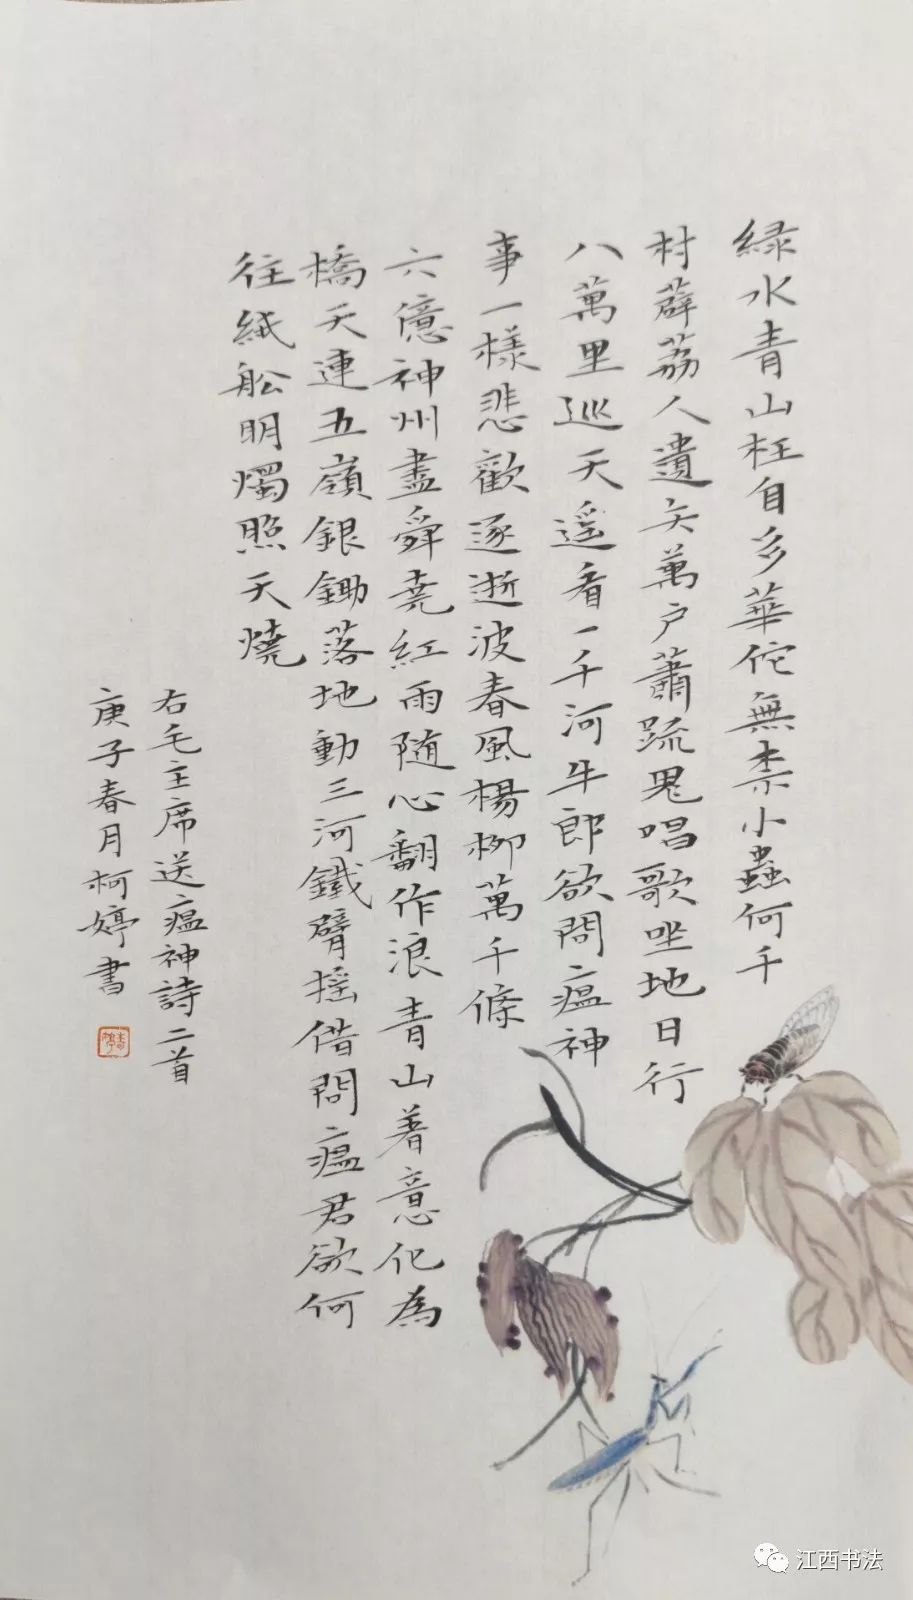 緑水青山枉自多華佗無柰小蟲何千
村薜荔人遺矢萬户蕭疏鬼唱歌坐地日行
八萬里巡天遥看一千河牛郎欲問瘟神
事一樣悲歡逐逝波春風楊柳萬千條
六億神州盡舜堯紅雨随心翻作浪青山著意化為
橋天連五嶺銀鋤落地動三河鐵臂摇借問瘟君欲何
往紙舩明燭照天燒
右毛主席送瘟神詩二首
庚子春月柯婷書
江西书法